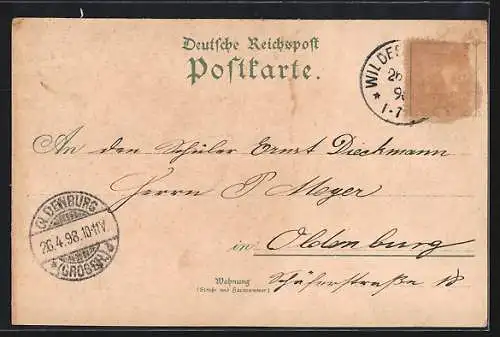 Deutsche Reichspost
Postkarte.
WILDES
26
9
1-7
An den Schüler Ernst Dieckmann
Herrn P Meyer
in Oldenburg
Schäferstraße 18
Wohnung
(Straße und Hausnummer)
OLDENBURG
26.4.98.10-11V.
(GROSSH.)